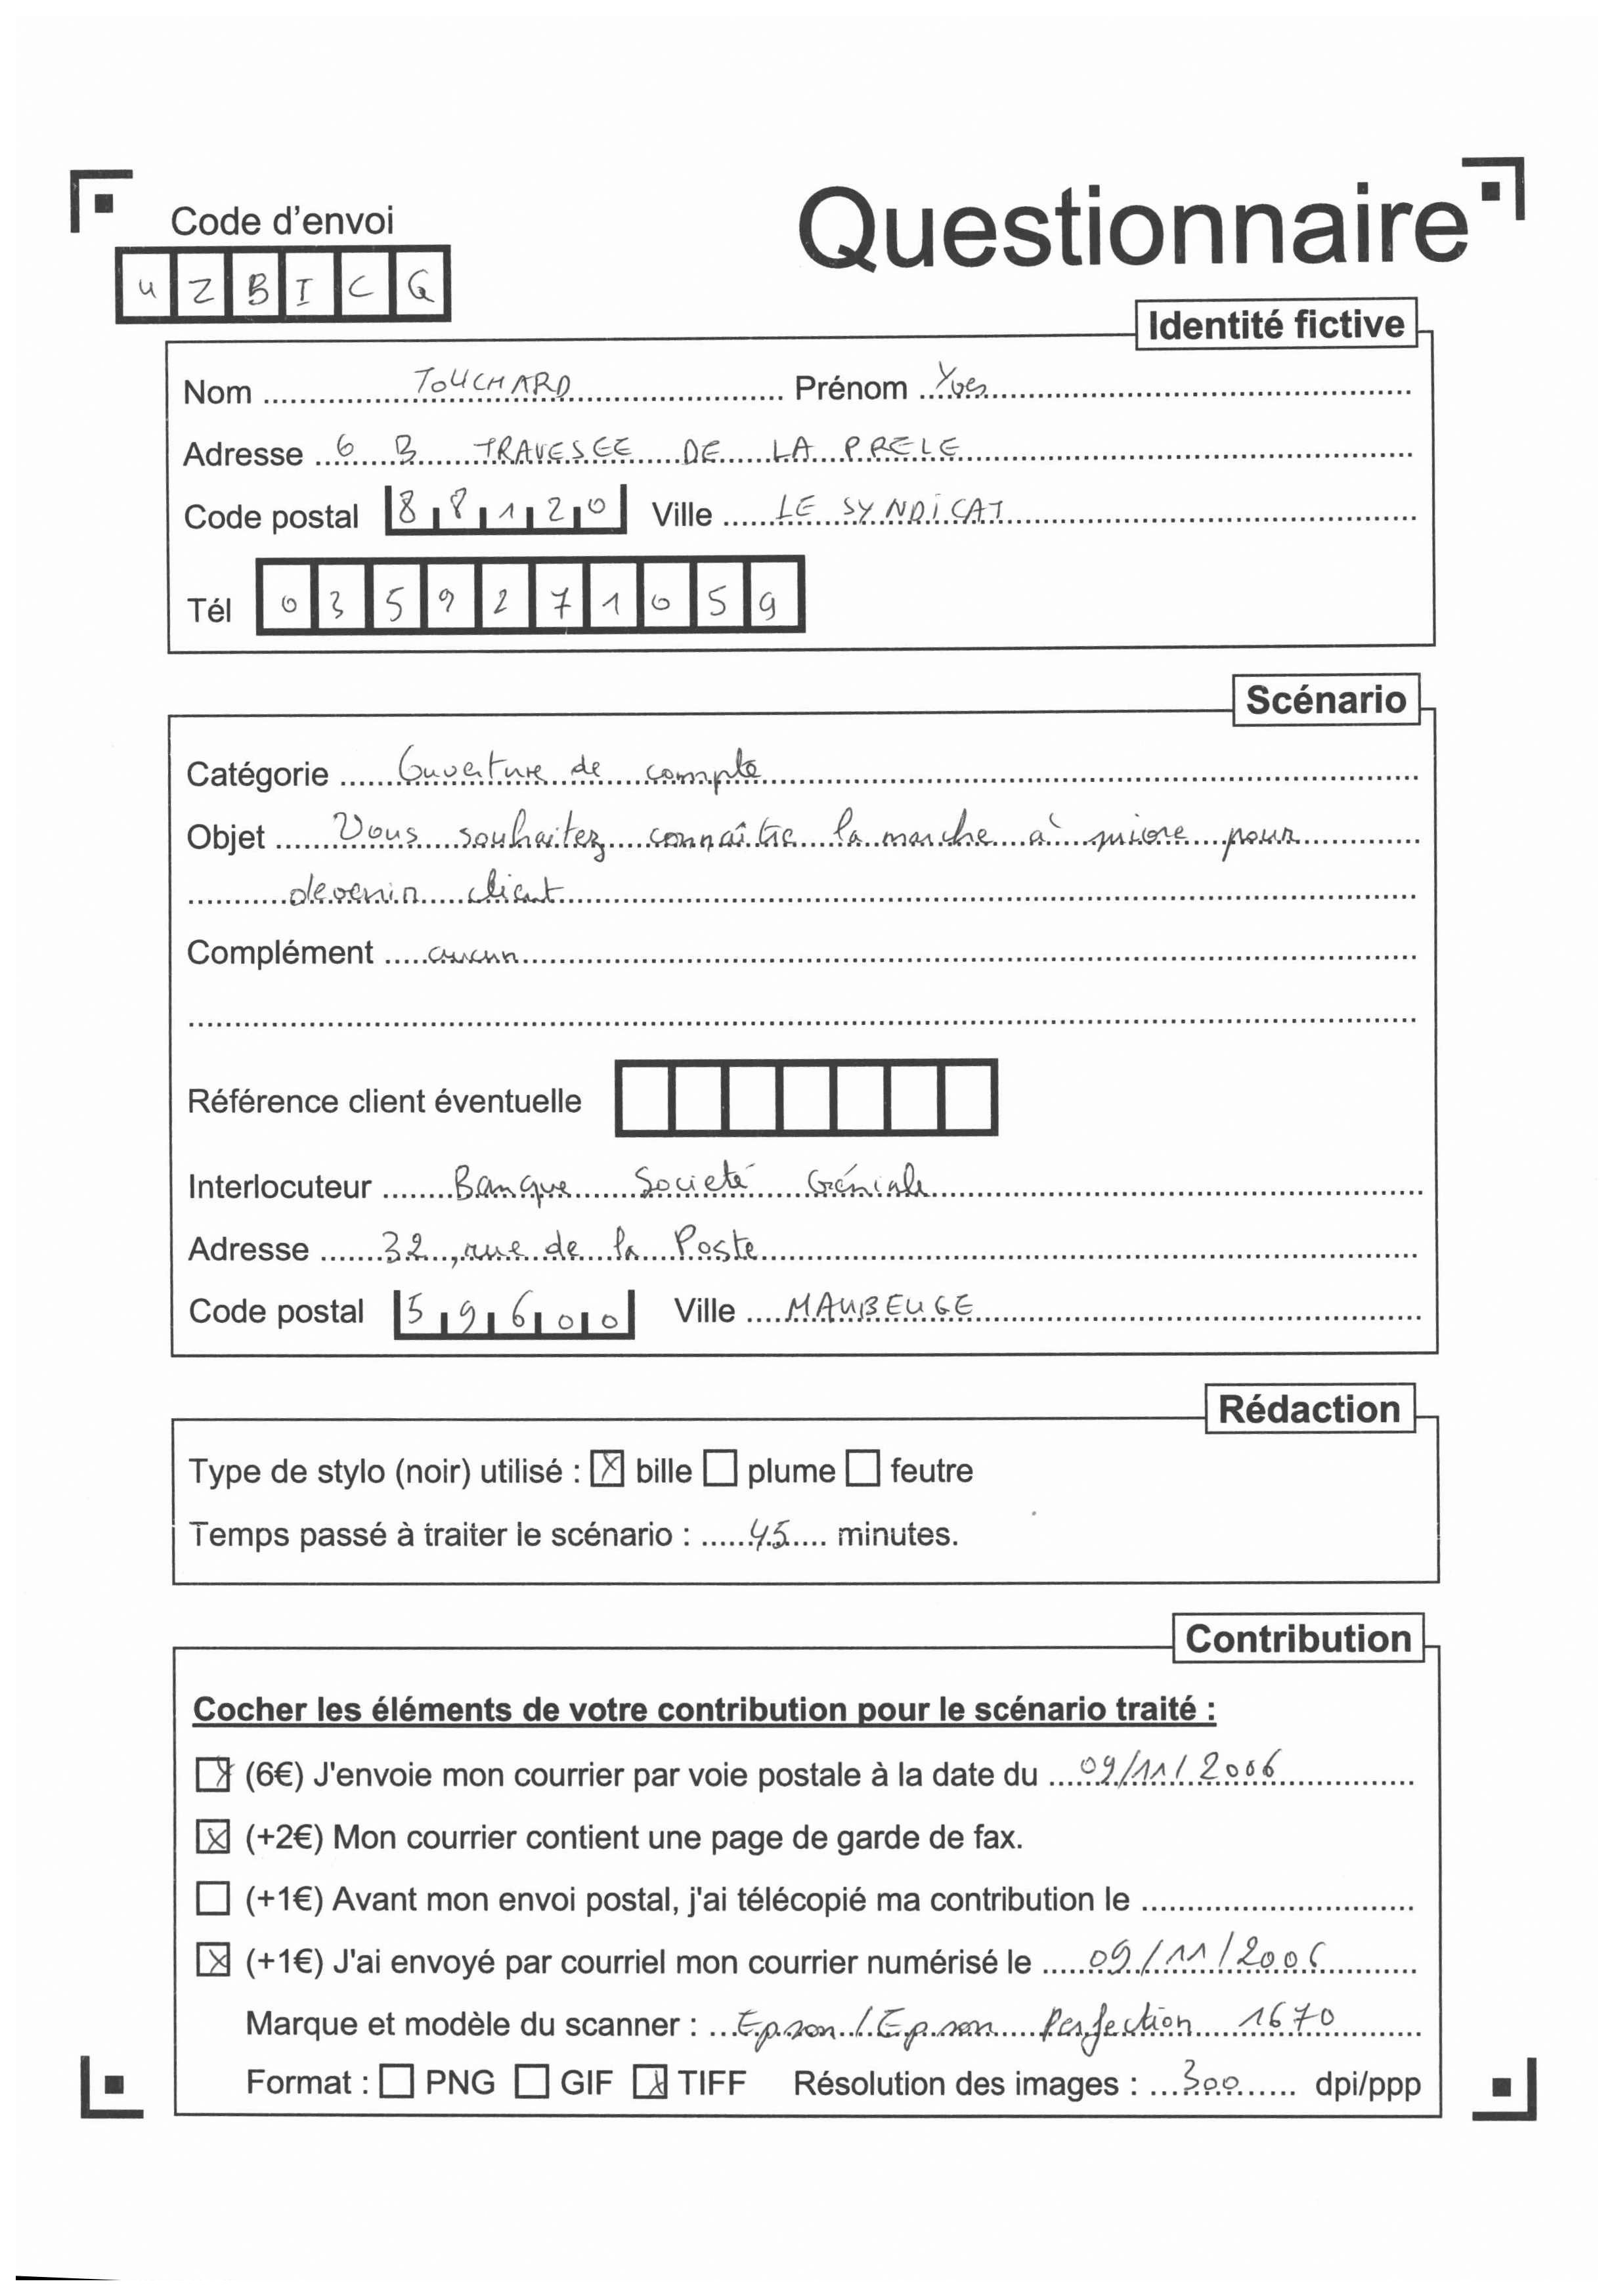 Code d'envoi
Questionnaire
u Z B I C Q
Identité fictive
Nom TOUCHARD Prénom Yves
Adresse 6 B TRAVESEE DE LA PRELE
Code postal 88120 Ville LE SYNDICAT
Tél 0359271059
Scénario
Catégorie Ouverture de compte
Objet Vous souhaitez connaître la marche à suivre pour
devenir client
Complément aucun
Référence client éventuelle
Interlocuteur Banque Societé Géniale
Adresse 32, rue de la Poste
Code postal 59600 Ville MAUBEUGE
Rédaction
Type de stylo (noir) utilisé : ☒ bille ☐ plume ☐ feutre
Temps passé à traiter le scénario : 45 minutes.
Contribution
Cocher les éléments de votre contribution pour le scénario traité :
☒ (6€) J'envoie mon courrier par voie postale à la date du 09/11/2006
☒ (+2€) Mon courrier contient une page de garde de fax.
☐ (+1€) Avant mon envoi postal, j'ai télécopié ma contribution le
☒ (+1€) J'ai envoyé par courriel mon courrier numérisé le 09/11/2006
Marque et modèle du scanner : Epson / Epson Perfection 1670
Format : ☐ PNG ☐ GIF ☒ TIFF Résolution des images : 300 dpi/ppp